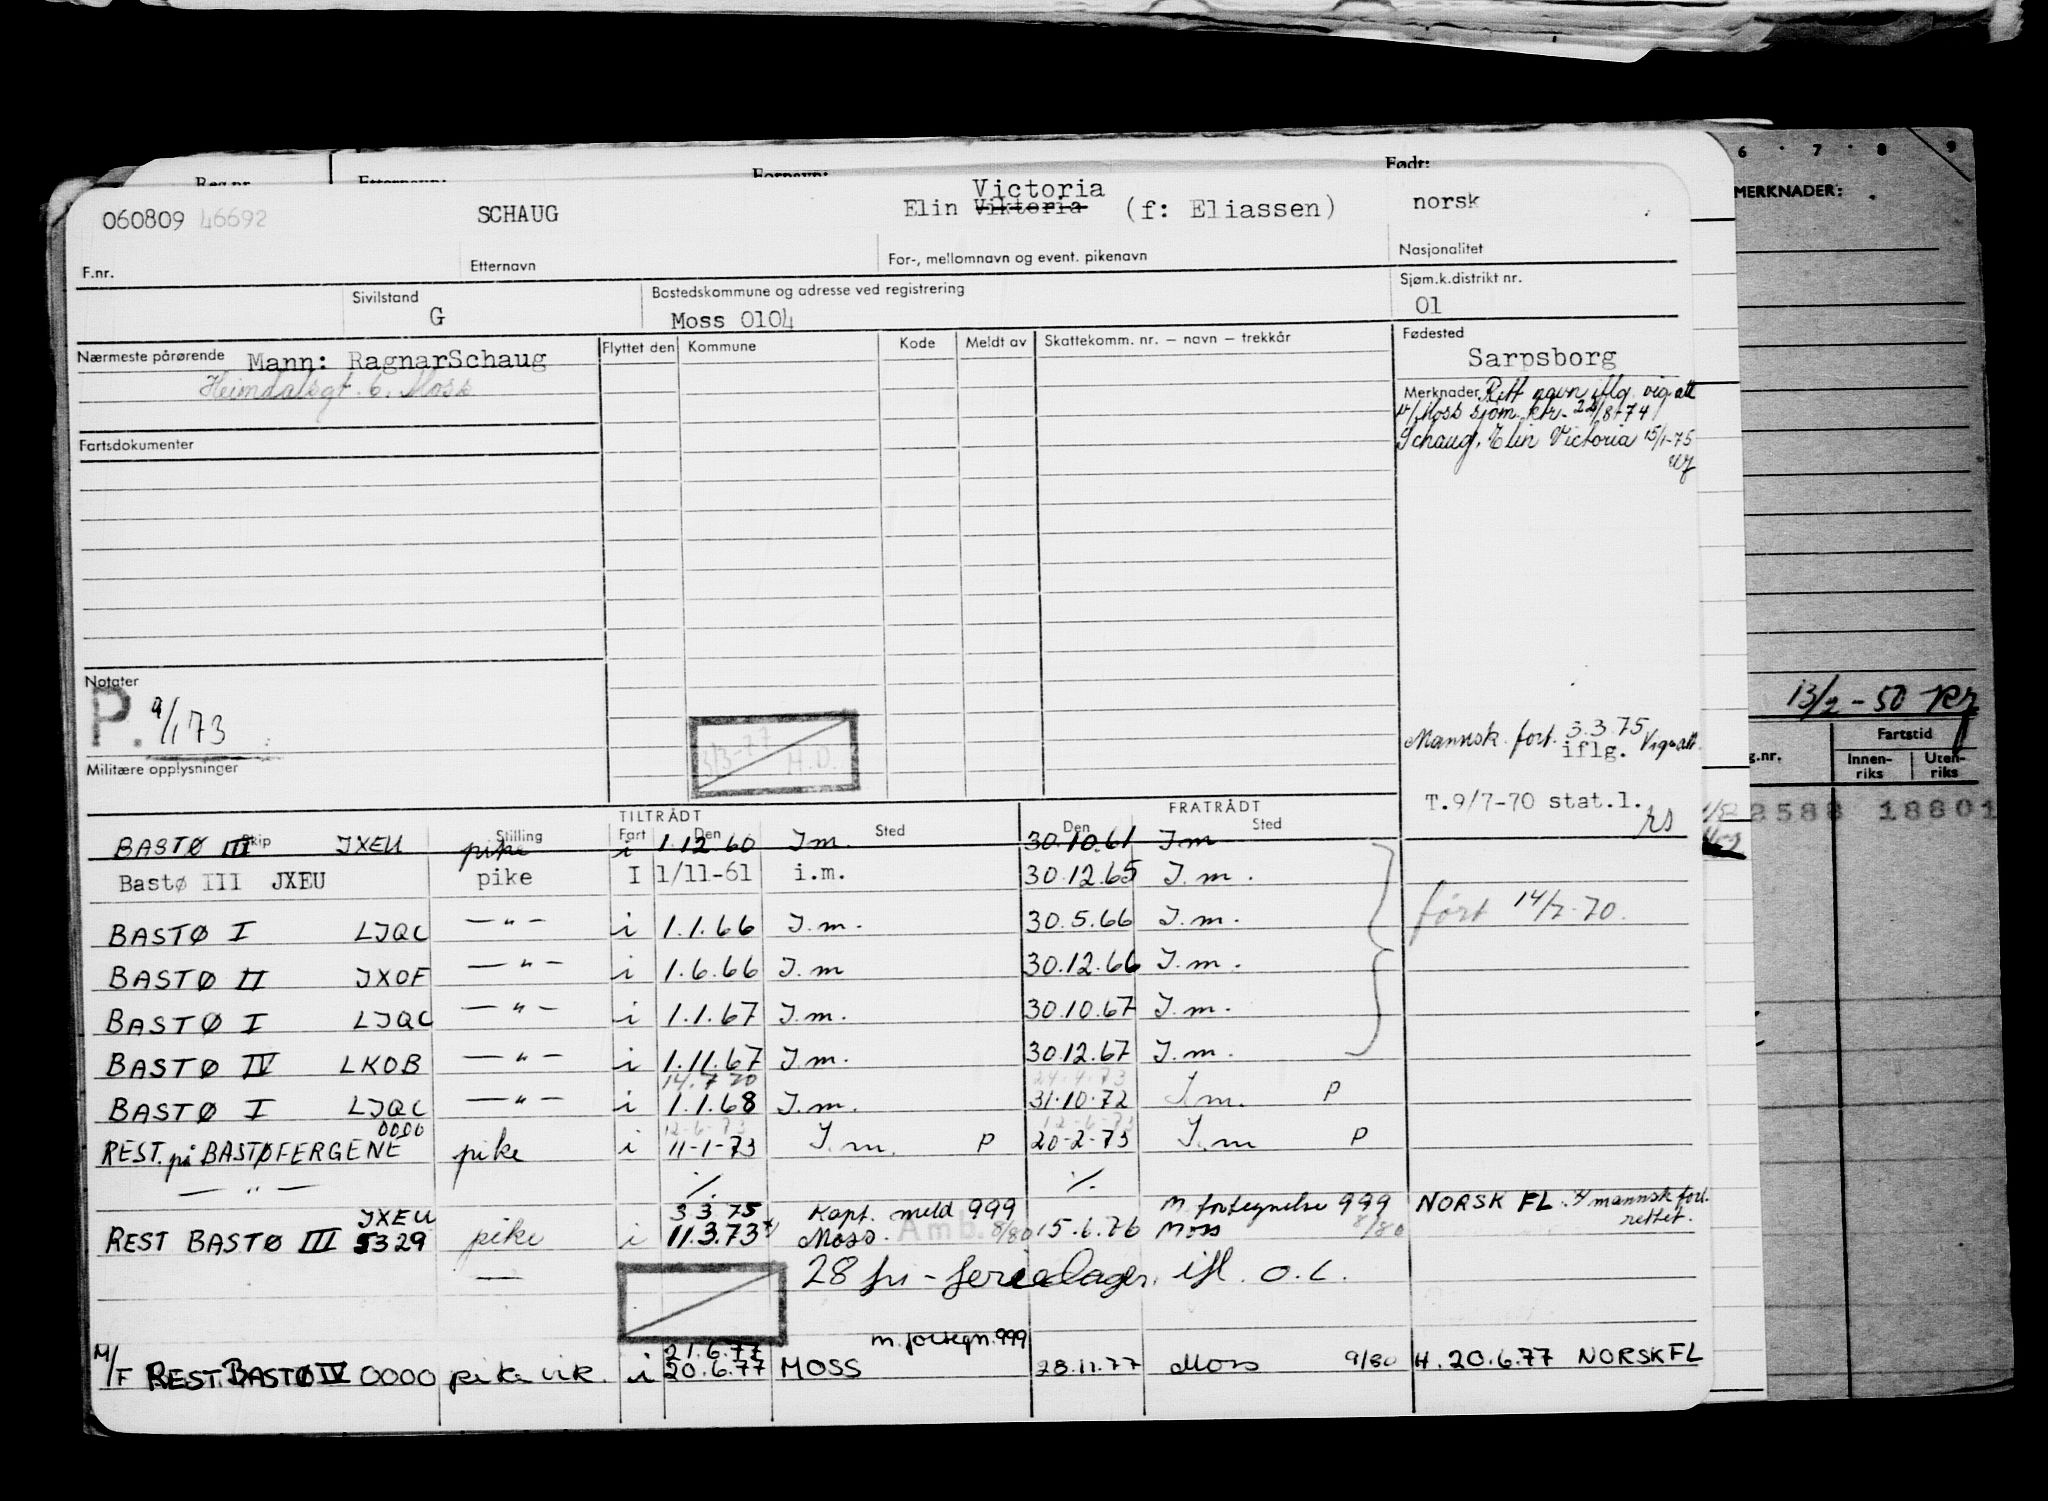 Reg.nr. Etternavn: Fornavn: Født:
060809 46692 SCHAUG Elin Viktoria Victoria (f: Eliassen) norsk
F.nr. Etternavn For-, mellomnavn og event. pikenavn Nasjonalitet
Sivilstand G Bostedskommune og adresse ved registrering Moss 0104 Sjøm.k.distrikt nr. 01
Nærmeste pårørende Mann: RagnarSchaug
Heimdalsgt. 6. Moss
Flyttet den Kommune Kode Meldt av Skattekomm. nr. — navn — trekkår
Fødested
Sarpsborg
Merknader Rett navn iflg. vig.att
v/Moss sjøm. ktr. 22/8-74
Schaug, Elin Victoria 15/1-75
Fartsdokumenter
Notater
P. 9/1 73
Militære opplysninger
3/3-77 A.O.
Mannsk. fort. 3.3.75
iflg. Vig.att.
T.9/7-70 stat.l.
rs
TILTRÅDT FRATRÅDT
Skip Stilling Fart Den Sted Den Sted
BASTØ III JXEU pike i 1.12.60 I.m. 30.10.61 I.m
Bastø III JXEU pike I 1/11-61 i.m. 30.12.65 I.m.
BASTØ I LJQC — " — i 1.1.66 I.m. 30.5.66 I.m. ført 14/7-70.
BASTØ II JXOF — " — i 1.6.66 I.m 30.12.66 I.m.
BASTØ I LJQC — " — i 1.1.67 I.m. 30.10.67 I.m.
BASTØ IV LKOB — " — i 1.11.67 I.m. 30.12.67 I.m.
14.7 70 24.4.73
BASTØ I LJQC — " — i 1.1.68 I.m. 31.10.72 I.m. P
0000 12-6-73 12-6-73
REST. på BASTØFERGENE pike i 11-1-73 I.m. P 20-2-73 I.m P
— " — ./. ./.
JXEU 3 3 75 Kapt. meld 999 m. fortegnelse 999 NORSK FL. mannsk fort. rettet.
REST BASTØ III 5329 pike i 11.3.73 Moss. Amb. 8/80 15.6.76 Moss 8/80
— 28 fri-feriedager. ifl. o.l.
21.6.77 m. fortegn. 999
M/F REST. BASTØ IV 0000 pike vik. i 20.6.77 MOSS 28.11.77 Moss 9/80 H. 20.6.77 NORSK FL
6 · 7 · 8 9
MERKNADER:
13/2-50
Fartstid
g.nr. Innen-riks Uten-riks
2588 18801